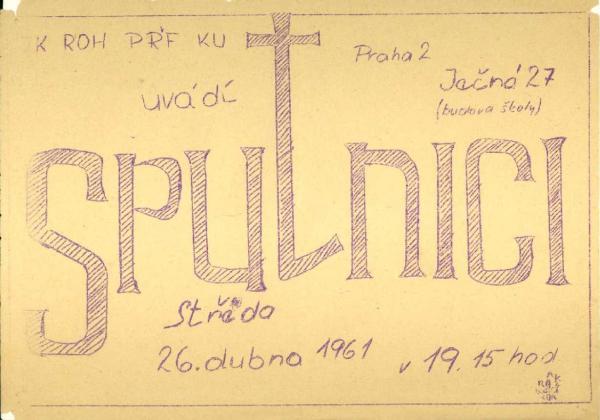 K ROH PŘF KU
Praha 2
Ječná 27
(budova školy)
uvádí
SPUTNICI
Středa
26. dubna 1961 v 19.15 hod